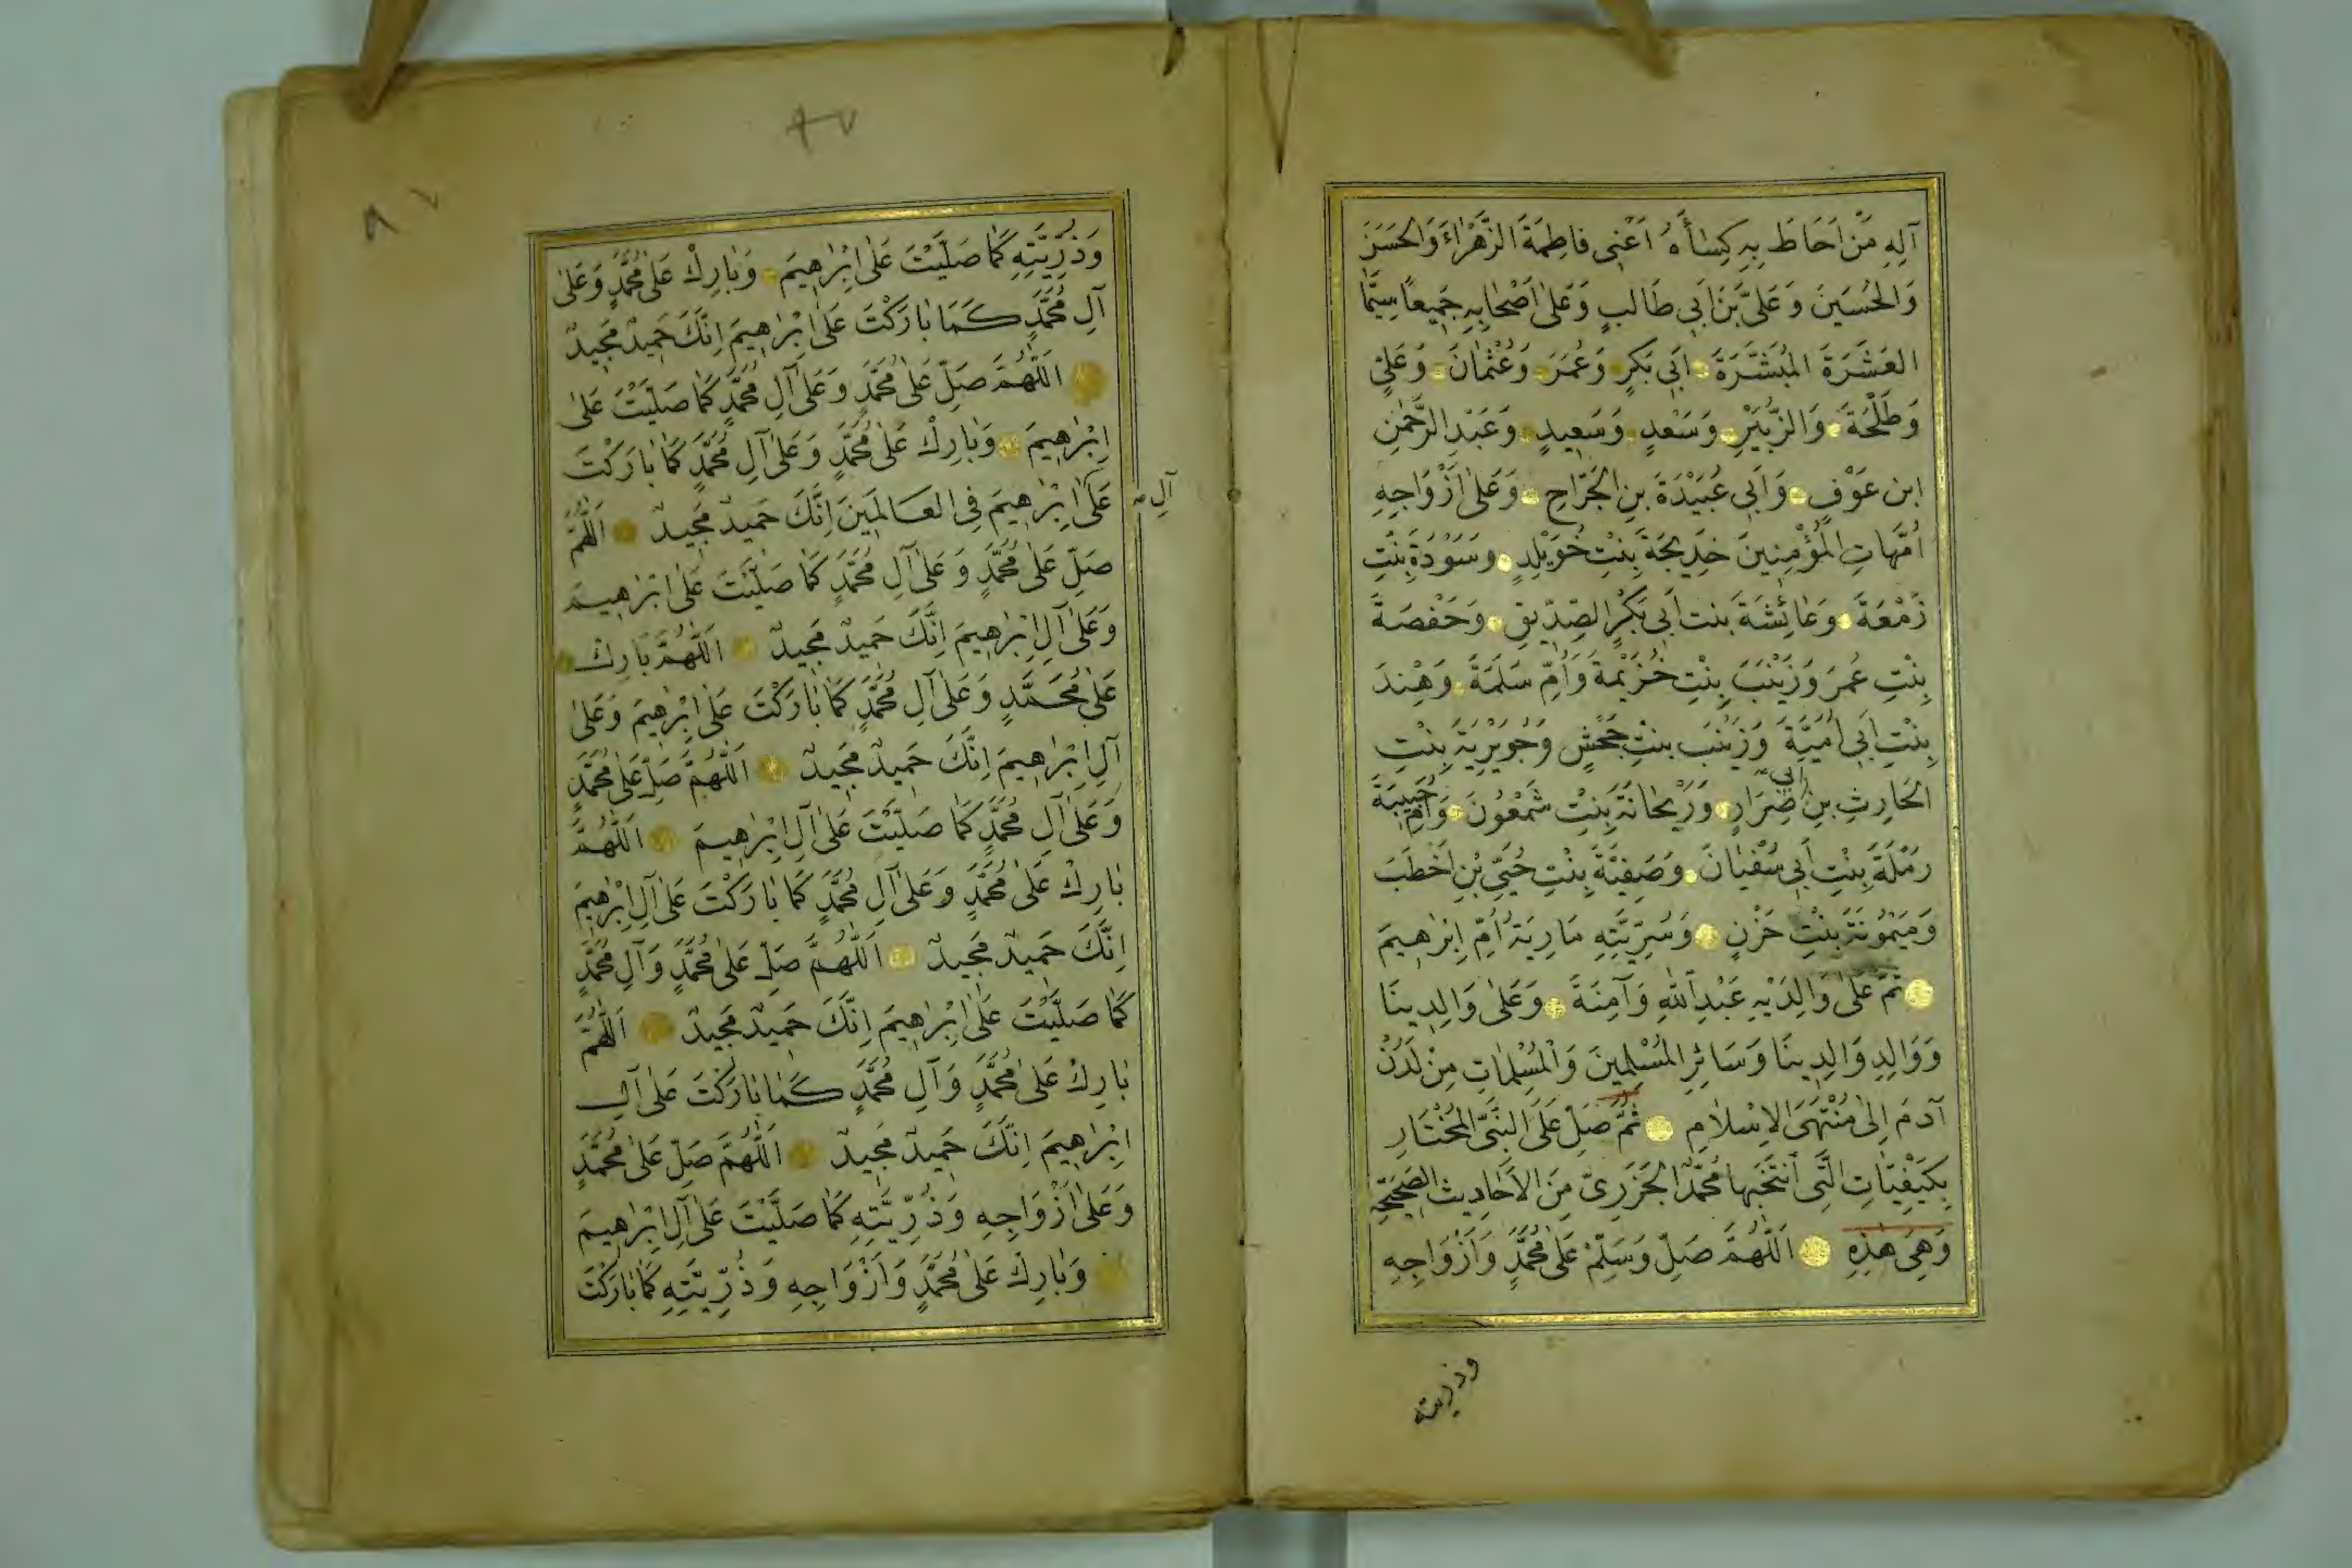 آلِهِ مَنْ اَحَاطَ بِهِ كِسَاۤأُهُ اَعْنِى فَاطِمَةَ الزَّهْرَاءَ وَالْحَسَنَ
وَالْحُسَيْنَ وَعَلِىَّ بْنَ اَبِى طَالِبٍ وَعَلٰى اَصْحَابِهِ جَمِيعًا سِيَّمَا
العَشَرَةَ الْمُبَشَّرَةَ اَبِى بَكرٍ وَعُمَرَ وَعُثْمَانَ وَعَلِىٍّ
وَطَلْحَةَ وَالزُّبَيْرِ وَسَعْدٍ وَسَعِيدٍ وَعَبْدِ الرَّحْمٰنِ
ابن عَوْفٍ وَاَبِى عُبَيْدَةَ بنِ الْجَرَّاحِ وَعَلٰى اَزْوَاجِهِ
اُمَّهَاتِ الْمُؤْمِنِينَ خَدِيجَةَ بِنْتِ خُوَيْلِدٍ وَسَوْدَةَ بِنْتِ
زَمْعَةَ وَعَائِشَةَ بنت اَبِى بَكْرٍ الصِّدِّيقِ وَحَفْصَةَ
بِنْتِ عُمَرَ وَزَيْنَبَ بِنْتِ خُزَيْمَةَ وَاُمِّ سَلَمَةَ وَهِنْدَ
بِنْتِ اَبِى اُمَيَّةَ وَزَيْنَبَ بنتِ جَحْشٍ وَجُوَيْرِيَةَ بِنْتِ
الْحَارِثِ بنِ اَبِى ضِرَارٍ وَرَيْحَانَةَ بِنْتِ شَمْعُونَ وَاُمِّ حَبِيبَةَ
رَمْلَةَ بِنْتِ اَبِى سُفْيَانَ وَصَفِيَّةَ بِنْتِ حُيَىِّ بْنِ اَخْطَبَ
وَمَيْمُونَةَ بِنْتِ حَزْنٍ وَسُرِّيَّتِهِ مَارِيَةَ اُمِّ اِبْرٰهِيمَ
ثُمَّ عَلٰى وَالِدَيْهِ عَبْدِ اللّٰهِ وَآمِنَةَ وَعَلٰى وَالِدِينَا
وَوَالِدِ وَالِدِينَا وَسَائِرِ الْمُسْلِمِينَ وَالْمُسْلِمَاتِ مِنْ لَدُنْ
آدَمَ اِلٰى مُنْتَهَى الاِسْلَامِ ثُمَّ صَلِّ عَلَى النَّبِىِّ الْمُخْتَارِ
بِكَيْفِيَّاتِ الَّتِى انْتَخَبَهَا مُحَمَّدٌ الْجَزَرِىّ مِنَ الاَحَادِيثِ الصَّحِيحَةِ
وَهِىَ هٰذِهِ اَللّٰهُمَّ صَلِّ وَسَلِّمْ عَلٰى مُحَمَّدٍ وَاَزْوَاجِهِ
وذريته
٨٧
٨٧
وَذُرِّيَّتِهِ كَمَا صَلَّيْتَ عَلٰى اِبْرٰهِيمَ وَبَارِكْ عَلٰى مُحَمَّدٍ وَعَلٰى
آلِ مُحَمَّدٍ كَمَا بَارَكْتَ عَلٰى اِبْرٰهِيمَ اِنَّكَ حَمِيدٌ مَجِيدٌ
اَللّٰهُمَّ صَلِّ عَلٰى مُحَمَّدٍ وَعَلٰى آلِ مُحَمَّدٍ كَمَا صَلَّيْتَ عَلٰى
اِبْرٰهِيمَ وَبَارِكْ عَلٰى مُحَمَّدٍ وَعَلٰى آلِ مُحَمَّدٍ كَمَا بَارَكْتَ
عَلٰى اِبْرٰهِيمَ فِى الْعَالَمِينَ اِنَّكَ حَمِيدٌ مَجِيدٌ اَللّٰهُمَّ
آلِ
صَلِّ عَلٰى مُحَمَّدٍ وَعَلٰى آلِ مُحَمَّدٍ كَمَا صَلَّيْتَ عَلٰى اِبْرٰهِيمَ
وَعَلٰى آلِ اِبْرٰهِيمَ اِنَّكَ حَمِيدٌ مَجِيدٌ اَللّٰهُمَّ بَارِكْ
عَلٰى مُحَمَّدٍ وَعَلٰى آلِ مُحَمَّدٍ كَمَا بَارَكْتَ عَلٰى اِبْرٰهِيمَ وَعَلٰى
آلِ اِبْرٰهِيمَ اِنَّكَ حَمِيدٌ مَجِيدٌ اَللّٰهُمَّ صَلِّ عَلٰى مُحَمَّدٍ
وَعَلٰى آلِ مُحَمَّدٍ كَمَا صَلَّيْتَ عَلٰى آلِ اِبْرٰهِيمَ اَللّٰهُمَّ
بَارِكْ عَلٰى مُحَمَّدٍ وَعَلٰى آلِ مُحَمَّدٍ كَمَا بَارَكْتَ عَلٰى آلِ اِبْرٰهِيمَ
اِنَّكَ حَمِيدٌ مَجِيدٌ اَللّٰهُمَّ صَلِّ عَلٰى مُحَمَّدٍ وَآلِ مُحَمَّدٍ
كَمَا صَلَّيْتَ عَلٰى اِبْرٰهِيمَ اِنَّكَ حَمِيدٌ مَجِيدٌ اَللّٰهُمَّ
بَارِكْ عَلٰى مُحَمَّدٍ وَآلِ مُحَمَّدٍ كَمَا بَارَكْتَ عَلٰى آلِ
اِبْرٰهِيمَ اِنَّكَ حَمِيدٌ مَجِيدٌ اَللّٰهُمَّ صَلِّ عَلٰى مُحَمَّدٍ
وَعَلٰى اَزْوَاجِهِ وَذُرِّيَّتِهِ كَمَا صَلَّيْتَ عَلٰى آلِ اِبْرٰهِيمَ
وَبَارِكْ عَلٰى مُحَمَّدٍ وَاَزْوَاجِهِ وَذُرِّيَّتِهِ كَمَا بَارَكْتَ